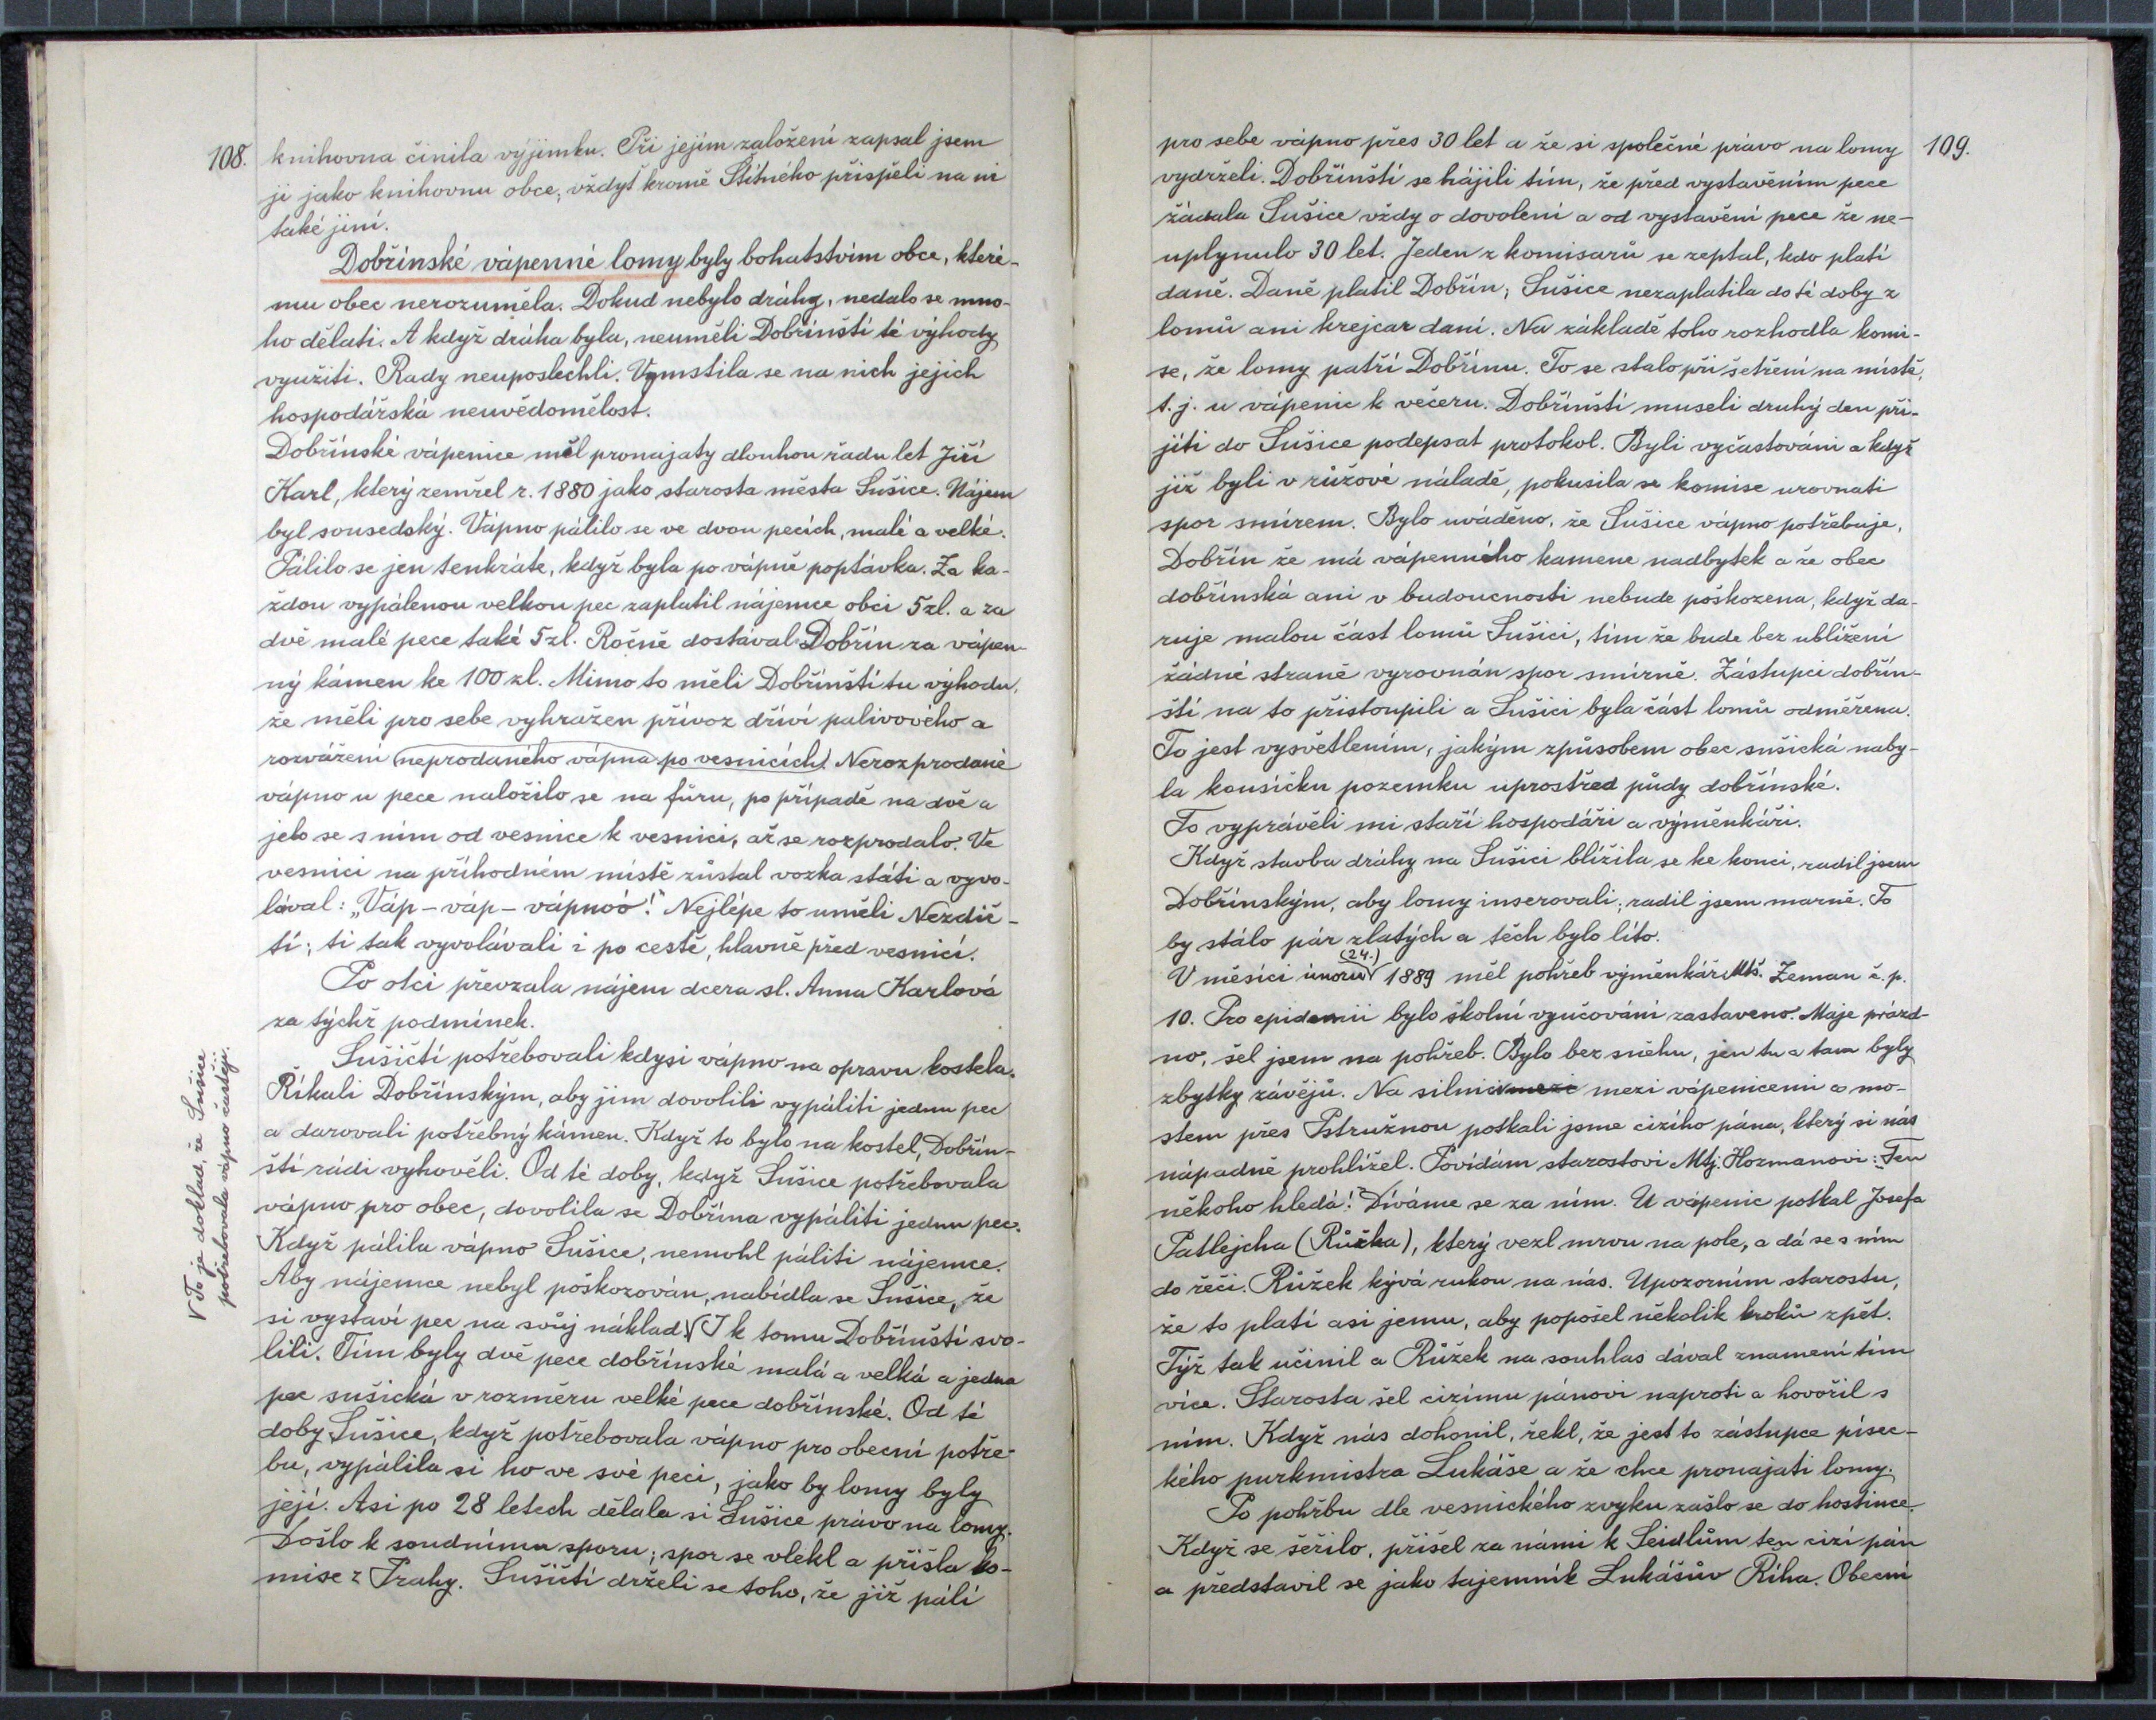 108.
knihovna činila výjimku. Při jejím založení zapsal jsem
ji jako knihovnu obce, vždyť kromě Štítného přispěli na ni
také jiní.
Dobřínské vápenné lomy byly bohatstvím obce, které-
mu obec nerozuměla. Dokud nebylo dráhy, nedalo se mno-
ho dělati. A když dráha byla, neuměli Dobřínští té výhody
využiti. Rady neuposlechli. Vymstila se na nich jejich
hospodářská neuvědomělost.
Dobřínské vápenice měl pronajaty dlouhou řadu let Jiří
Karl, který zemřel r. 1880 jako starosta města Sušice. Nájem
byl sousedský. Vápno pálilo se ve dvou pecích, malé a velké.
Pálilo se jen tenkráte, když byla po vápně poptávka. Za ka-
ždou vypálenou velkou pec zaplatil nájemce obci 5zl. a za
dvě malé pece také 5zl. Ročně dostával Dobřín za vápen-
ný kámen ke 100 zl. Mimo to měli Dobřínští tu výhodu,
že měli pro sebe vyhražen přívoz dříví palivového a
rozvážení (neprodaného vápna po vesnicích). Nerozprodané
vápno u pece naložilo se na fůru, po případě na dvě a
jelo se s ním od vesnice k vesnici, až se rozprodalo. Ve
vesnici na příhodném místě zůstal vozka státi a vyvo-
lával: „Váp – váp – vápnoó!" Nejlépe to uměli Nezdič-
tí; ti tak vyvolávali i po cestě, hlavně před vesnicí.
Po otci převzala nájem dcera sl. Anna Karlová
za týchž podmínek.
Sušičtí potřebovali kdysi vápno na opravu kostela.
Říkali Dobřínským, aby jim dovolili vypáliti jednu pec
a darovali potřebný kámen. Když to bylo na kostel, Dobřín-
ští rádi vyhověli. Od té doby, když Sušice potřebovala
vápno pro obec, dovolila se Dobřína vypáliti jednu pec.
Když pálila vápno Sušice, nemohl páliti nájemce.
Aby nájemce nebyl poškozován, nabídla se Sušice, že
si vystaví pec na svůj náklad. V I k tomu Dobřínští svo-
lili. Tím byly dvě pece dobřínské malá a velká a jedna
pec sušická v rozměru velké pece dobřínské. Od té
doby Sušice, když potřebovala vápno pro obecní potře-
bu, vypálila si ho ve své peci, jako by lomy byly
její. Asi po 28 letech dělala si Sušice právo na lomy.
Došlo k soudnímu sporu; spor se vlekl a přišla ko-
mise z Prahy. Sušičtí drželi se toho, že již pálí
V To je doklad, že Sušice
potřebovala vápno častěji.
109.
pro sebe vápno přes 30 let a že si společné právo na lomy
vydrželi. Dobřínští se hájili tím, že před vystavěním pece
žádala Sušice vždy o dovolení a od vystavění pece že ne-
uplynulo 30 let. Jeden z komisarů se zeptal, kdo platí
daně. Daně platil Dobřín; Sušice nezaplatila do té doby z
lomů ani krejcar daní. Na základě toho rozhodla komi-
se, že lomy patří Dobřínu. To se stalo při šetření na místě,
t. j. u vápenic k večeru. Dobřínští museli druhý den při-
jíti do Sušice podepsat protokol. Byli vyčastováni a když
již byli v růžové náladě, pokusila se komise urovnati
spor smírem. Bylo uváděno, že Sušice vápno potřebuje,
Dobřín že má vápenného kamene nadbytek a že obec
dobřínská ani v budoucnosti nebude poškozena, když da-
ruje malou část lomů Sušici, tím že bude bez ublížení
žádné straně vyrovnán spor smírně. Zástupci dobřín-
ští na to přistoupili a Sušici byla část lomů odměřena.
To jest vysvětlením, jakým způsobem obec sušická naby-
la kousíčku pozemku uprostřed půdy dobřínské.
To vyprávěli mi staří hospodáři a výměnkáři.
Když stavba dráhy na Sušici blížila se ke konci, radil jsem
Dobřínským, aby lomy inserovali; radil jsem marně. To
by stálo pár zlatých a těch bylo líto.
V měsíci únoru (24.) 1889 měl pohřeb výměnkář Mtš. Zeman č. p.
10. Pro epidemii bylo školní vyučování zastaveno. Maje prázd-
no, šel jsem na pohřeb. Bylo bez sněhu, jen tu a tam byly
zbytky závějů. Na silnici mezi mezi vápenicemi a mo-
stem přes Pstružnou potkali jsme cizího pána, který si nás
nápadně prohlížel. Povídám starostovi Mtj. Hozmanovi: „Ten
někoho hledá!" Díváme se za ním. U vápenic potkal Josefa
Patlejcha (Růžka), který vezl mrvu na pole, a dá se s ním
do řeči. Růžek kývá rukou na nás. Upozorním starostu,
že to platí asi jemu, aby popošel několik kroků zpět.
Týž tak učinil a Růžek na souhlas dával znamení tím
více. Starosta šel cizímu pánovi naproti a hovořil s
ním. Když nás dohonil, řekl, že jest to zástupce písec-
kého purkmistra Lukáše a že chce pronajati lomy.
Po pohřbu dle vesnického zvyku zašlo se do hostince.
Když se šeřilo, přišel za námi k Seidlům ten cizí pán
a představil se jako tajemník Lukášův Říha. Obecní